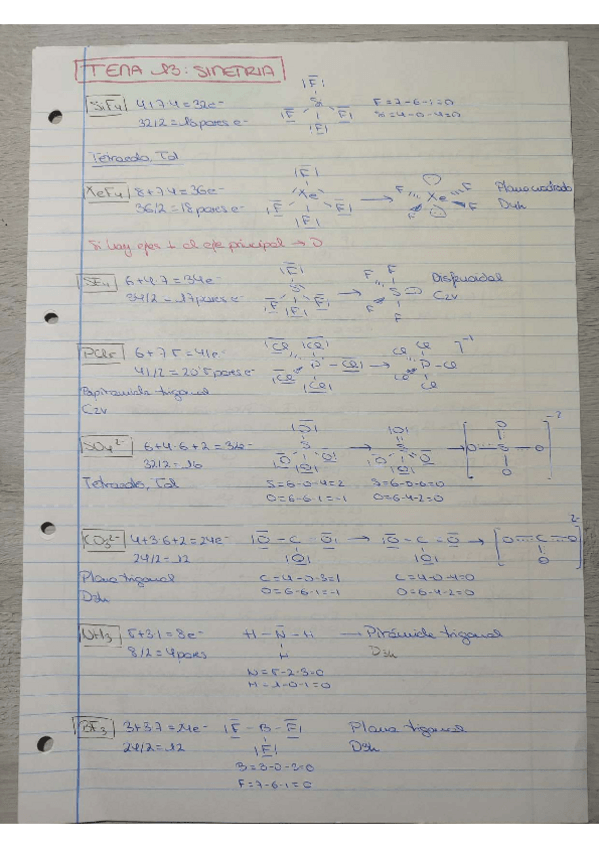 TEMA 13: SIMETRIA
SiF4 4+7·4=32e-
32/2=16pares e-
F=7-6-1=0
Si=4-0-4=0
Tetraedo, Td
XeF4 8+7·4=36e-
36/2=18pares e-
Plano cuadrado
D4h
Si hay ejes ⊥ al eje principal → D
SF4 6+4·7=34e-
34/2=17pares e-
Disfenoidal
C2v
PCl5 6+7·5=41e-
41/2=20'5pares e-
Bipiramide trigonal
C2v
SO4 2- 6+4·6+2=32e-
32/2=16
Tetraedo, Td
S=6-0-4=2
O=6-6-1=-1
S=6-0-6=0
O=6-4-2=0
CO3 2- 4+3·6+2=24e-
24/2=12
Plana trigonal
D3h
C=4-0-3=1
O=6-6-1=-1
C=4-0-4=0
O=6-4-2=0
NH3 5+3·1=8e-
8/2=4pares
H-N-H
H
→ Pirámide trigonal
D3h
N=5-2-3=0
H=1-0-1=0
BF3 3+3·7=24e-
24/2=12
F-B-F
F
Plana trigonal
D3h
B=3-0-2=0
F=7-6-1=0